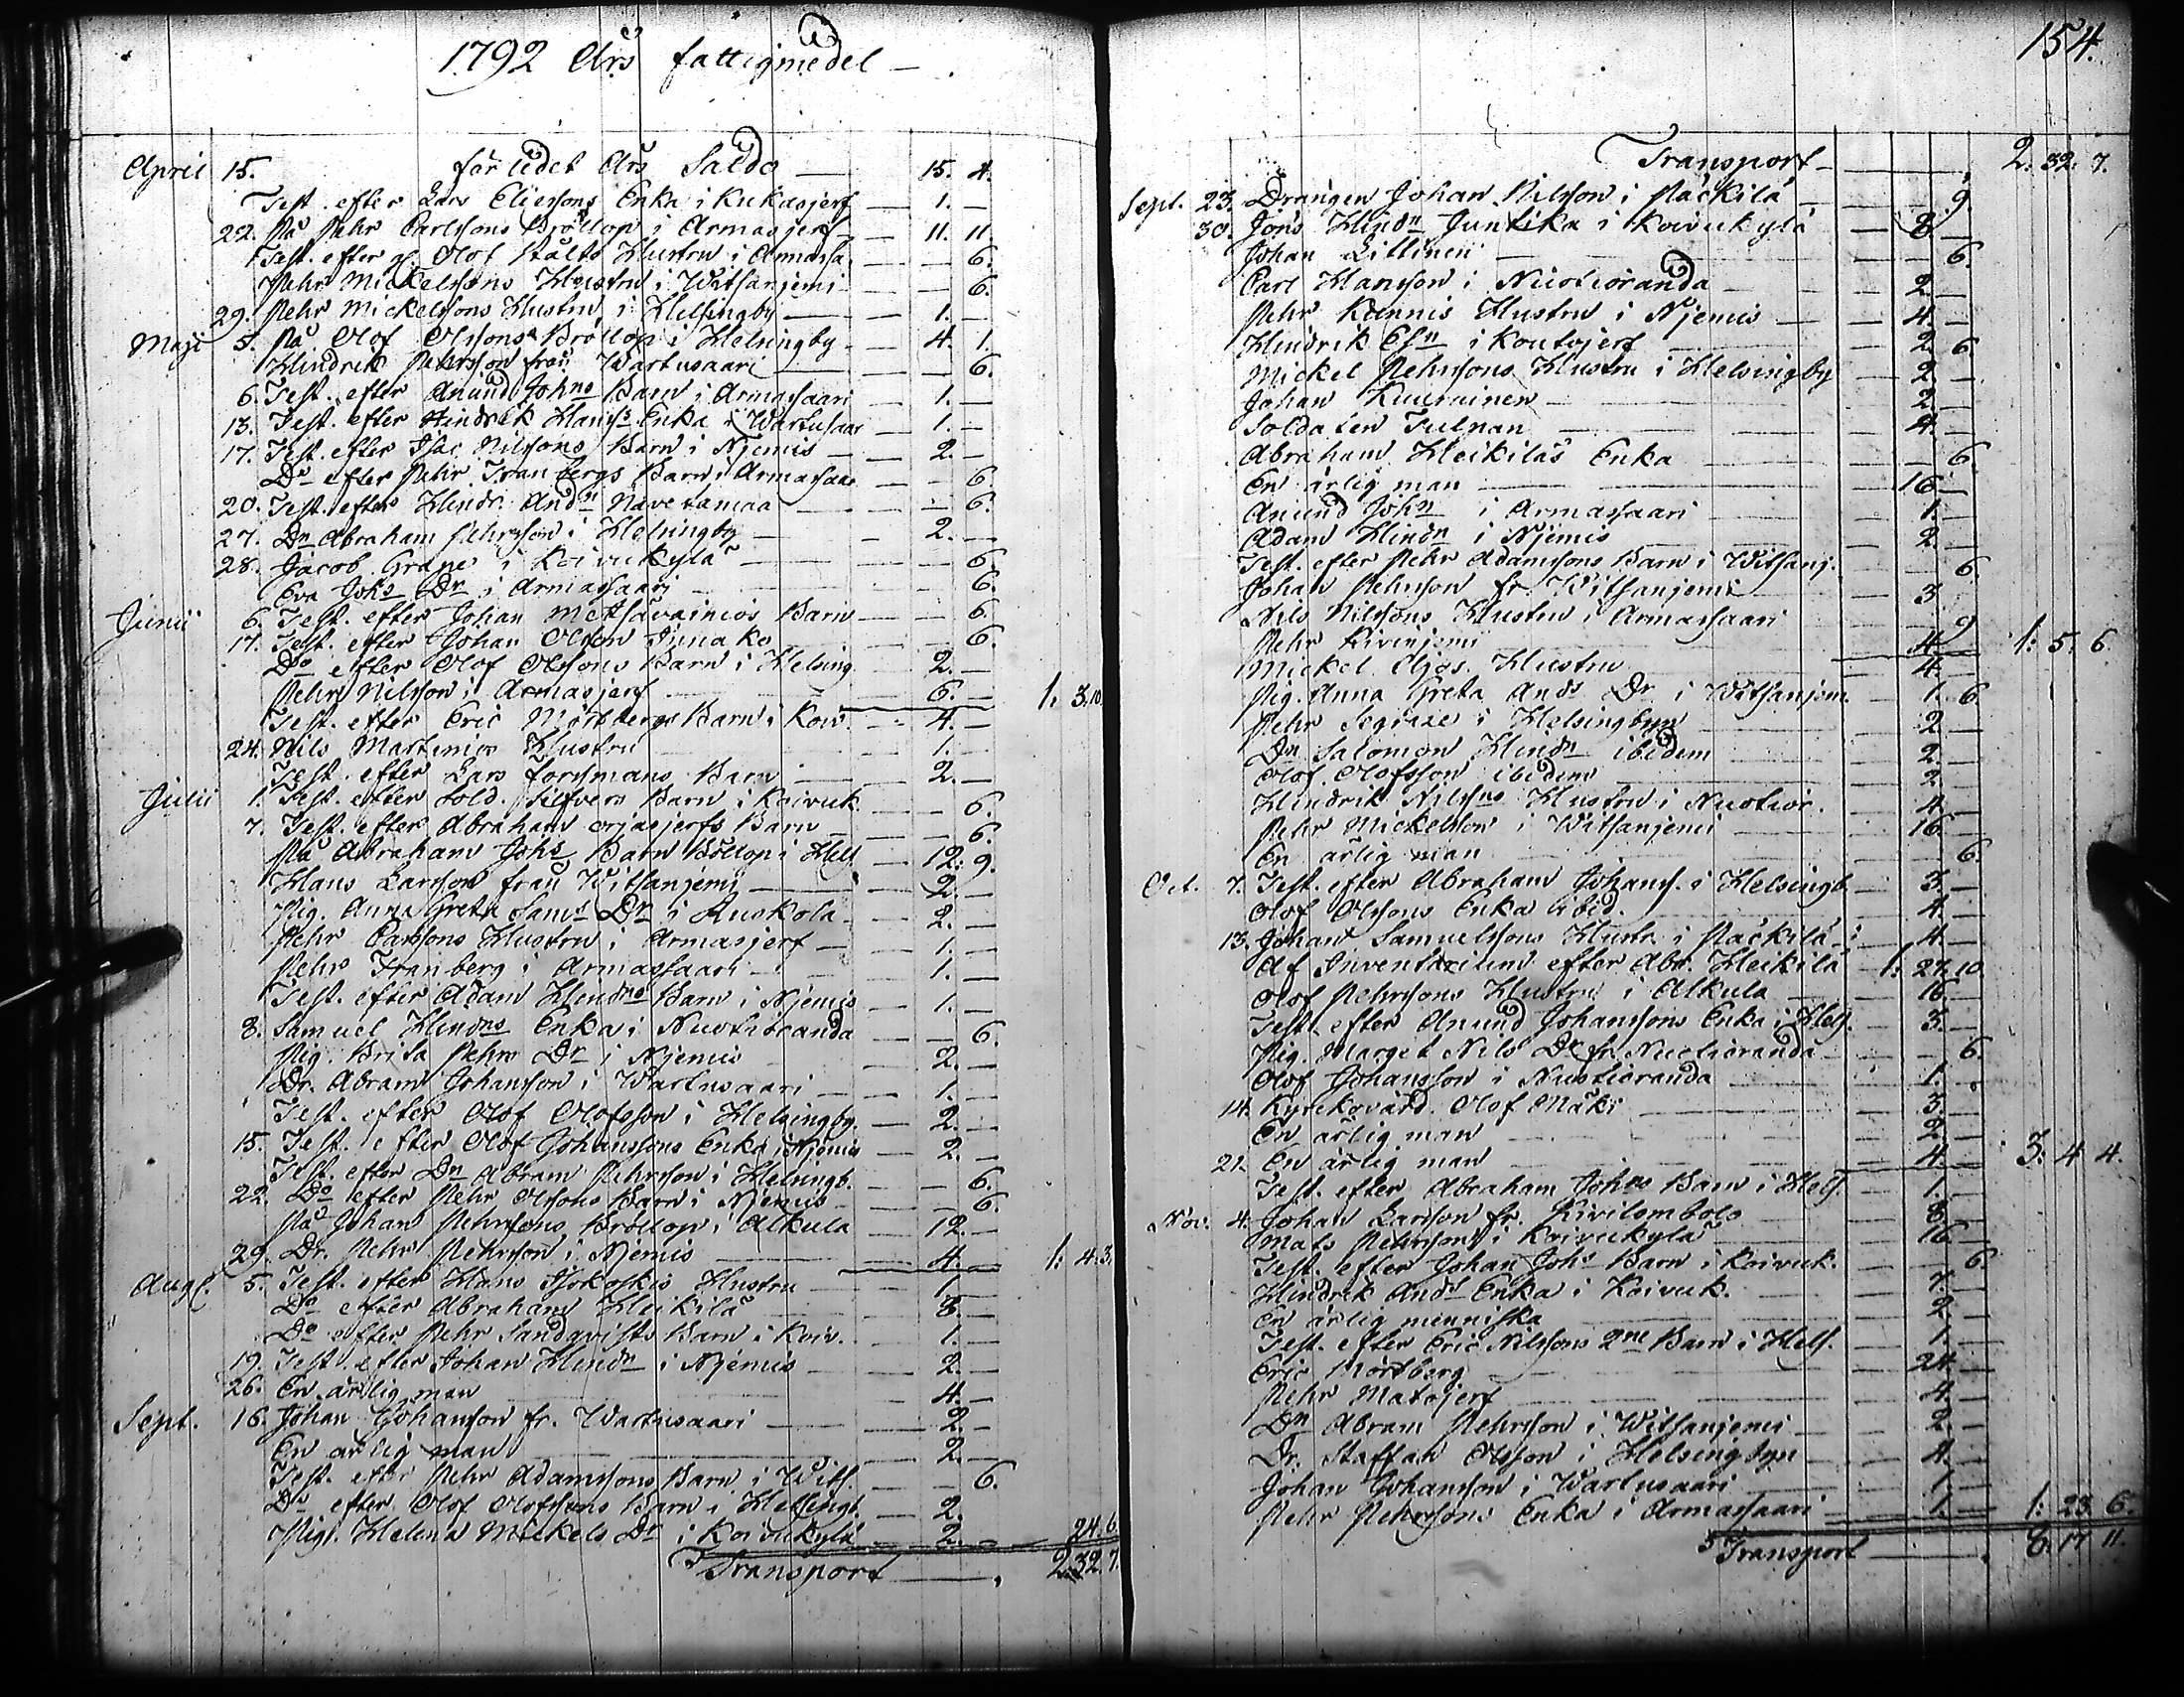 1792 Års fattigmedel —
April 15. förledet Års Saldo — 15. 4.
Test. efter Lars Eliessons Enka i Kukasjerf — 1. —
22. På Pehr Carlssons Bröllop i Armasjerf — 11. 11
Test. efter Olof Stålts Hustru i Armassa. — 6.
Pehr Mickelssons Hustru i Witsanjemi — 6.
29. Pehr Mickelssons Hustru i Helsingby — 1. —
Maji 5. På Olof Olssons Bröllop i Helsingby — 4. 1.
Hindrik Pehrsson från Wartusaari — 6.
6. Test. efter Anund Johns Barn i Armassaari — 1. —
13. Test. efter Hindrik Hans Enka i Wartusaar — 1. —
17. Test. efter Isac Nilssons Barn i Njemis — 2. —
Do efter Pehr Franbergs Barn i Armassaar — 6
20. Test. efter Hindr. Andn Navetamaa — 6.
27. Dn Abraham Pehrsson i Helsingby — 2. —
28. Jacob Grape i Koivukylä — 6.
Eva Johs Dr i Armassaari — 6.
Junii 6. Test. efter Johan Metsävainios Barn — 6.
17. Test. efter Johan Olsson — 6.
Do efter Olof Olssons Barn i Helsing. 2. —
Pehr Nilsson i Armasjerf — 6. — 1. 3. 10
Test. efter Eric Mörtbergs Barn i Koiv. — 4. —
24. Nils Martinies Hustru 1. —
Test. efter Lars Forssmans Barn — 2. —
Julii 1. Test. efter Sold. Silfvers Barn i Koivuk — 6.
7. Test. efter Abraham Orjasjerfs Barn — 6.
På Abraham Johs Barn Böllop i Hels — 12. 9.
Hans Larsson från Witsanjemi — 2. —
Pig. Anna Greta Sams Dr i Ruskola — 2. —
Pehr Carlssons Hustru i Armasjerf — 1. —
Pehr Franberg i Armassaari — 1. —
Test. efter Adam Hindns Barn i Njemis — 1. —
8. Samuel Hindns Enka i Nuotioranda — 6.
Pig. Brita Pehrs Dr i Njemis — 2. —
Dr. Abram Johansson i Wartusaari — 1. —
Test. efter Olof Olofsson i Helsingby. — 2. —
15. Test. efter Olof Johanssons Enka i Njemis — 2. —
Test. efter Dn Abram Pehrsson i Helsingb. — 6.
22. Do efter Pehr Olssons Barn i Njemis — 6.
På Johan Pehrssons Bröllop i Alkula — 12. —
29. Dr. Pehr Pehrsson i Njemis — 4. — 1: 4. 3.
Aug. 5. Test. efter Hans Isokoskis Hustru — 1 —
Do efter Abraham Heikilä — 8. —
Do efter Pehr Sandqvists Barn i Koiv. — 1. —
19. Test. efter Johan Hindn i Njemis — 2. —
26. En ärlig man — 4. —
Sept. 16. Johan Johansson fr. Wartusaari — 2. —
En ärlig man — 2. —
Test. efter Pehr Adamssons Barn i Wits. — 6.
Do efter Olof Olofssons Barn i Helsingb. — 2.
Pig. Helena Mickels Dr i Koivukylä — 2. — 24. 6.
Transport — 2. 32. 7.
154.
Transport — 2. 32. 7.
Sept. 23. Drängen Johan Nilsson i Päckilä — 9.
30. Jöns Hindn Juntika i Koivukylä — 8. —
Johan Littinen — 6.
Carl Hansson i Nuotioranda — 2. —
Pehr Kannis Hustru i Njemis — 4. —
Hindrik Esn i Koutojerf — 2. 6
Mickel Pehrssons Hustru i Helsingby — 2. —
Johan Kuurninen — 2. —
Soldaten Tulpan — 4. —
Abraham Heikiläs Enka — 6.
En ärlig man — 16. —
Anund John i Armassaari — 1. —
Adam Hindn i Njemis — 2. —
Test. efter Pehr Adamssons Barn i Witsanj. — 6.
Johan Pehrsson fr. Witsanjemi — 3
Nils Nilssons Hustru i Armassaari — 9
Pehr Kivinjemi — 4. — 1: 5. 6
Mickel Ojos Hustru — 4. —
Pig. Anna Greta Ands Dr i Witsanjem. — 1. 6.
Pehr Segraze i Helsingbyn — 2. —
Dn Salomon Hindn ibidem — 2. —
Olof Olofsson ibidem — 2. —
Hindrik Nilssns Hustru i Nuotior. — 4. —
Pehr Mickelsson i Witsanjemi — 16. —
En ärlig man — 6.
Oct. 7. Test. efter Abraham Johanss. i Helsingb. — 3. —
Olof Olssons Enka ibid. — 4. —
13. Johan Samuelssons Hustr. i Päckilä — 4. —
Af Inventarium efter Abr. Heikilä — 1: 27. 10.
Olof Pehrssons Hustru i Alkula — 16. —
Test. efter Anund Johanssons Enka i Hels. — 3. —
Pig. Marget Nils Dr fr. Nuotioranda — 6.
Olof Johansson i Nuotioranda — 1. —
14. Kyrckovärd. Olof Mäki — 3. —
En ärlig man — 2. —
21. En ärlig man — 4. — 3: 4. 4.
Test. efter Abraham Johns Barn i Hels. — 1. —
Nov. 4. Johan Larsson fr. Kivilombolo — 8. —
Mats Pehrsson i Koivukylä — 16. —
Test. efter Johan Johs Barn i Koivuk. — 6.
Hindrik Ands Enka i Koivuk. — 7. —
En ärlig menniska — 2. —
Test. efter Eric Nilssons 2ne Barn i Hels. — 1. —
Eric Mörtberg — 24. —
Pehr Matojerf — 4. —
Dn Abram Pehrsson i Witsanjemi — 2. —
Dr. Staffan Olsson i Helsingbyn — 4. —
Johan Johansson i Wartusaari — 1. —
Pehr Pehrssons Enka i Armassaari — 1. — 1: 23. 6.
Transport — 8. 17. 11.